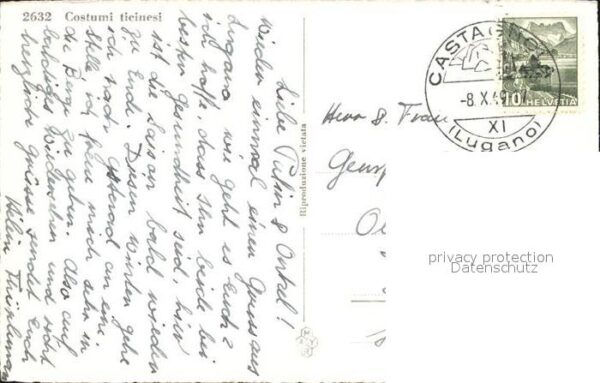 2632 Costumi ticinesi
Liebe Patin & Onkel!
Wieder einmal einen Gruss aus
Lugano wie geht es Euch?
ich hoffe, dass Ihr beide bei
bester Gesundheit seid, hier
ist die Saison bald wieder
zu Ende. Diesen Winter gehe
ich nach Gstaad an eine
Stelle ich freue mich sehr in
die Berge zu gehen. Also auf
baldiges Wiedersehen und recht
herzliche Grüsse sendet Euch
Riproduzione vietata
CASTAGNOLA
-8.X.49
XI
(Lugano)
10
HELVETIA
Herr & Frau
privacy protection
Datenschutz